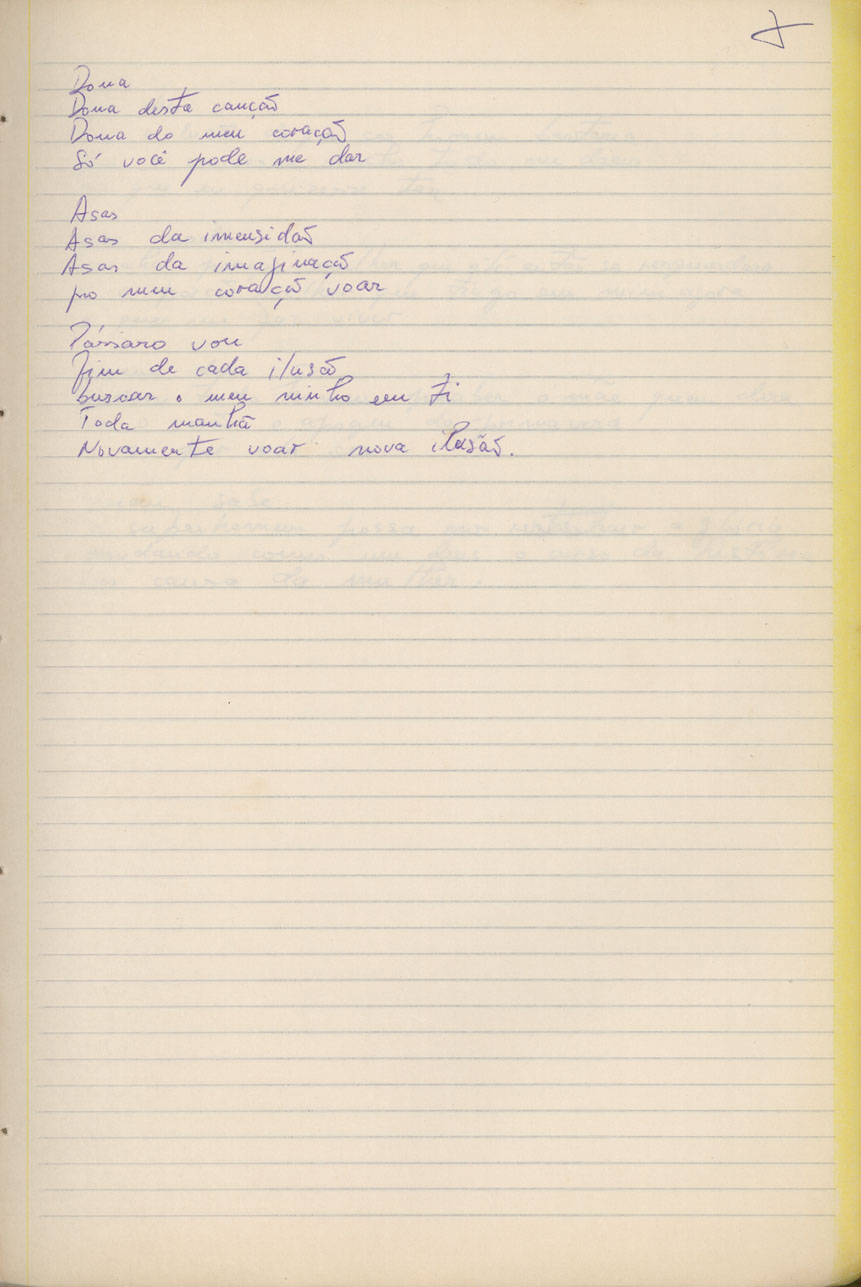 Dona
Dona desta canção
Dona do meu coração
Só você pode me dar
Asas
Asas da imensidão
Asas da imaginação
pro meu coração voar
Pássaro vou
fim de cada ilusão
buscar o meu ninho em ti
Toda manhã
Novamente voar nova ilusão.